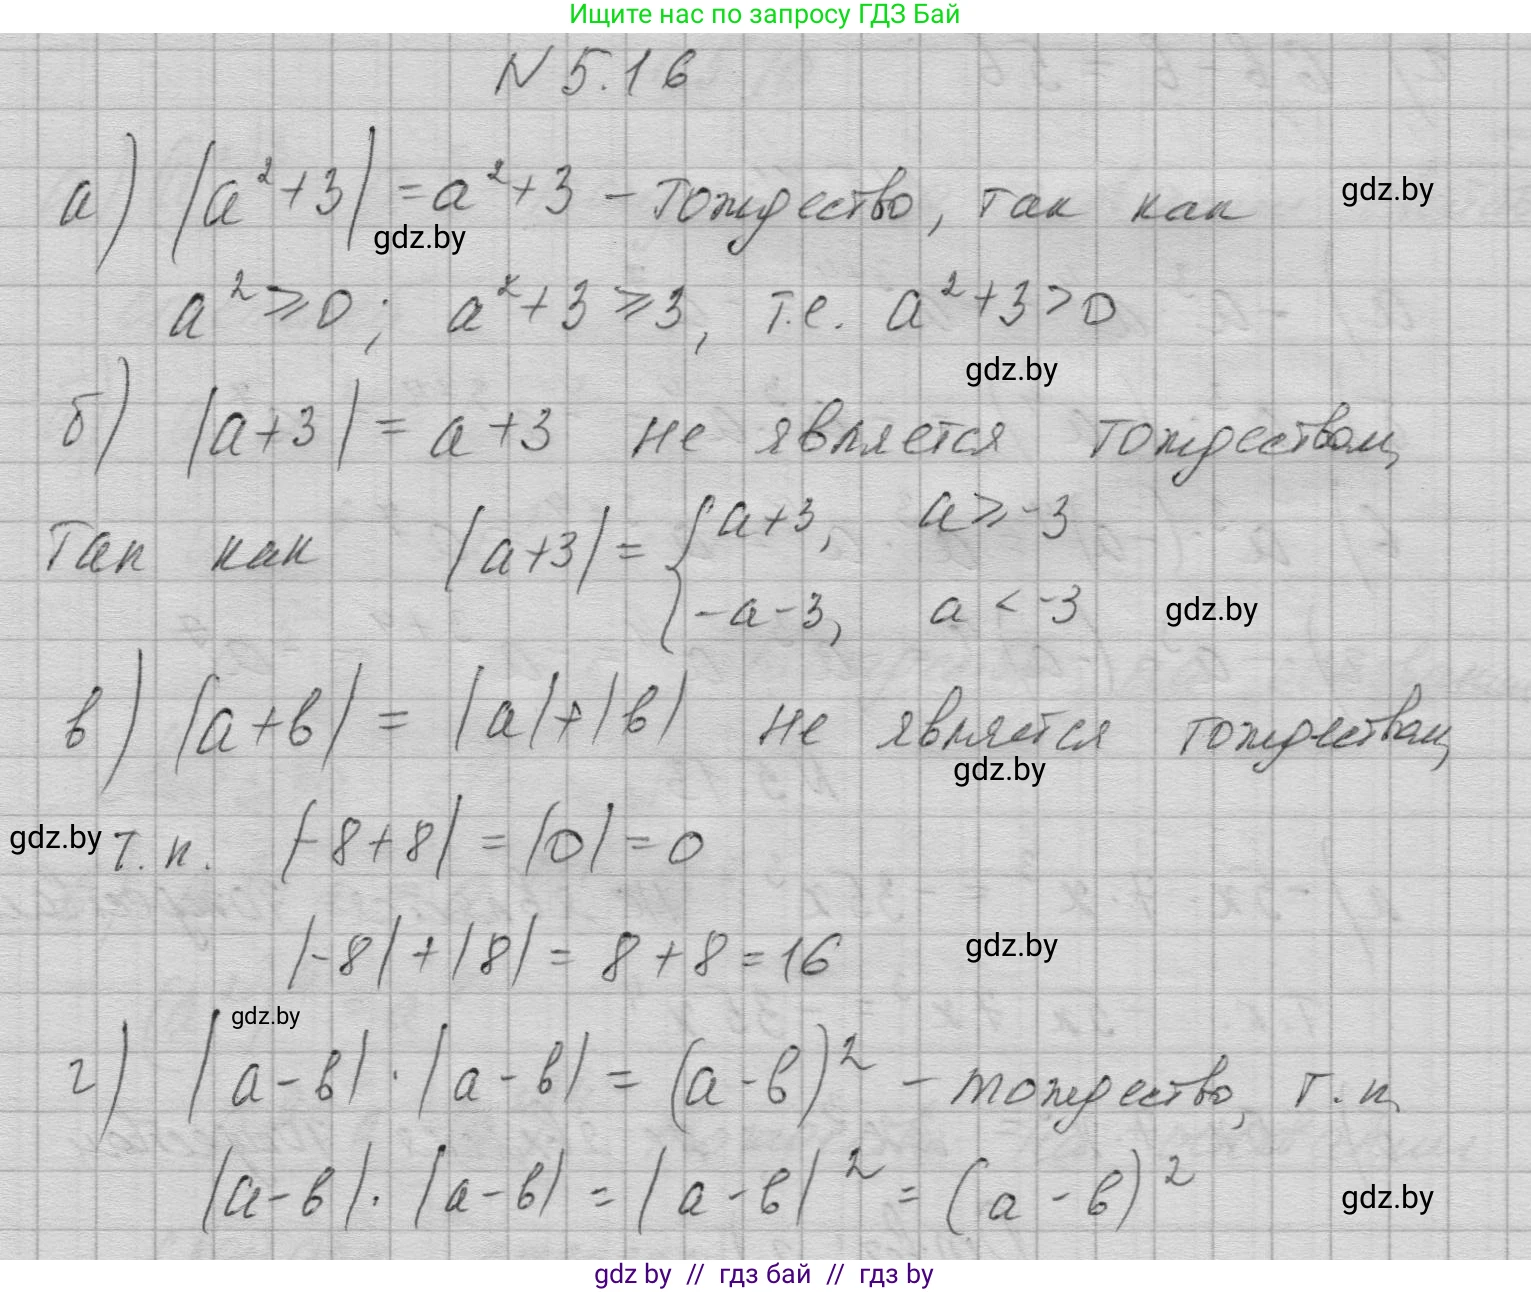 Ищите нас по запросу ГДЗ Бай
N 5.16
а) |a²+3| = a²+3 – тождество, так как gdz.by
gdz.by
a² ⩾ 0; a²+3 ⩾ 3, т.е. a²+3 > 0
gdz.by
б) |a+3| = a+3 не является тождеством,
так как |a+3| = { a+3, a ⩾ -3
-a-3, a < -3 gdz.by
в) |a+в| = |a|+|в| не является тождеством,
gdz.by
gdz.by т.к. |-8+8| = |0| = 0
|-8|+|8| = 8+8=16 gdz.by
gdz.by
г) |a-в|·|a-в| = (a-в)² – тождество, т.к.
|a-в|·|a-в| = |a-в|² = (a-в)² gdz.by
gdz by // гдз бай // гдз by